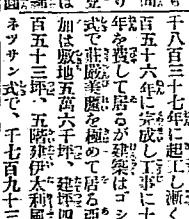 千八百三十七年に起工し漸く
百五十六年に完成し工事に十
年を費して居るが建築はゴシ
式で莊嚴美麗を極めて居る面
加は敷地五萬六千坪、建坪四
百五十三坪、五階建伊太利國
ネツサン式で、千七百九十三